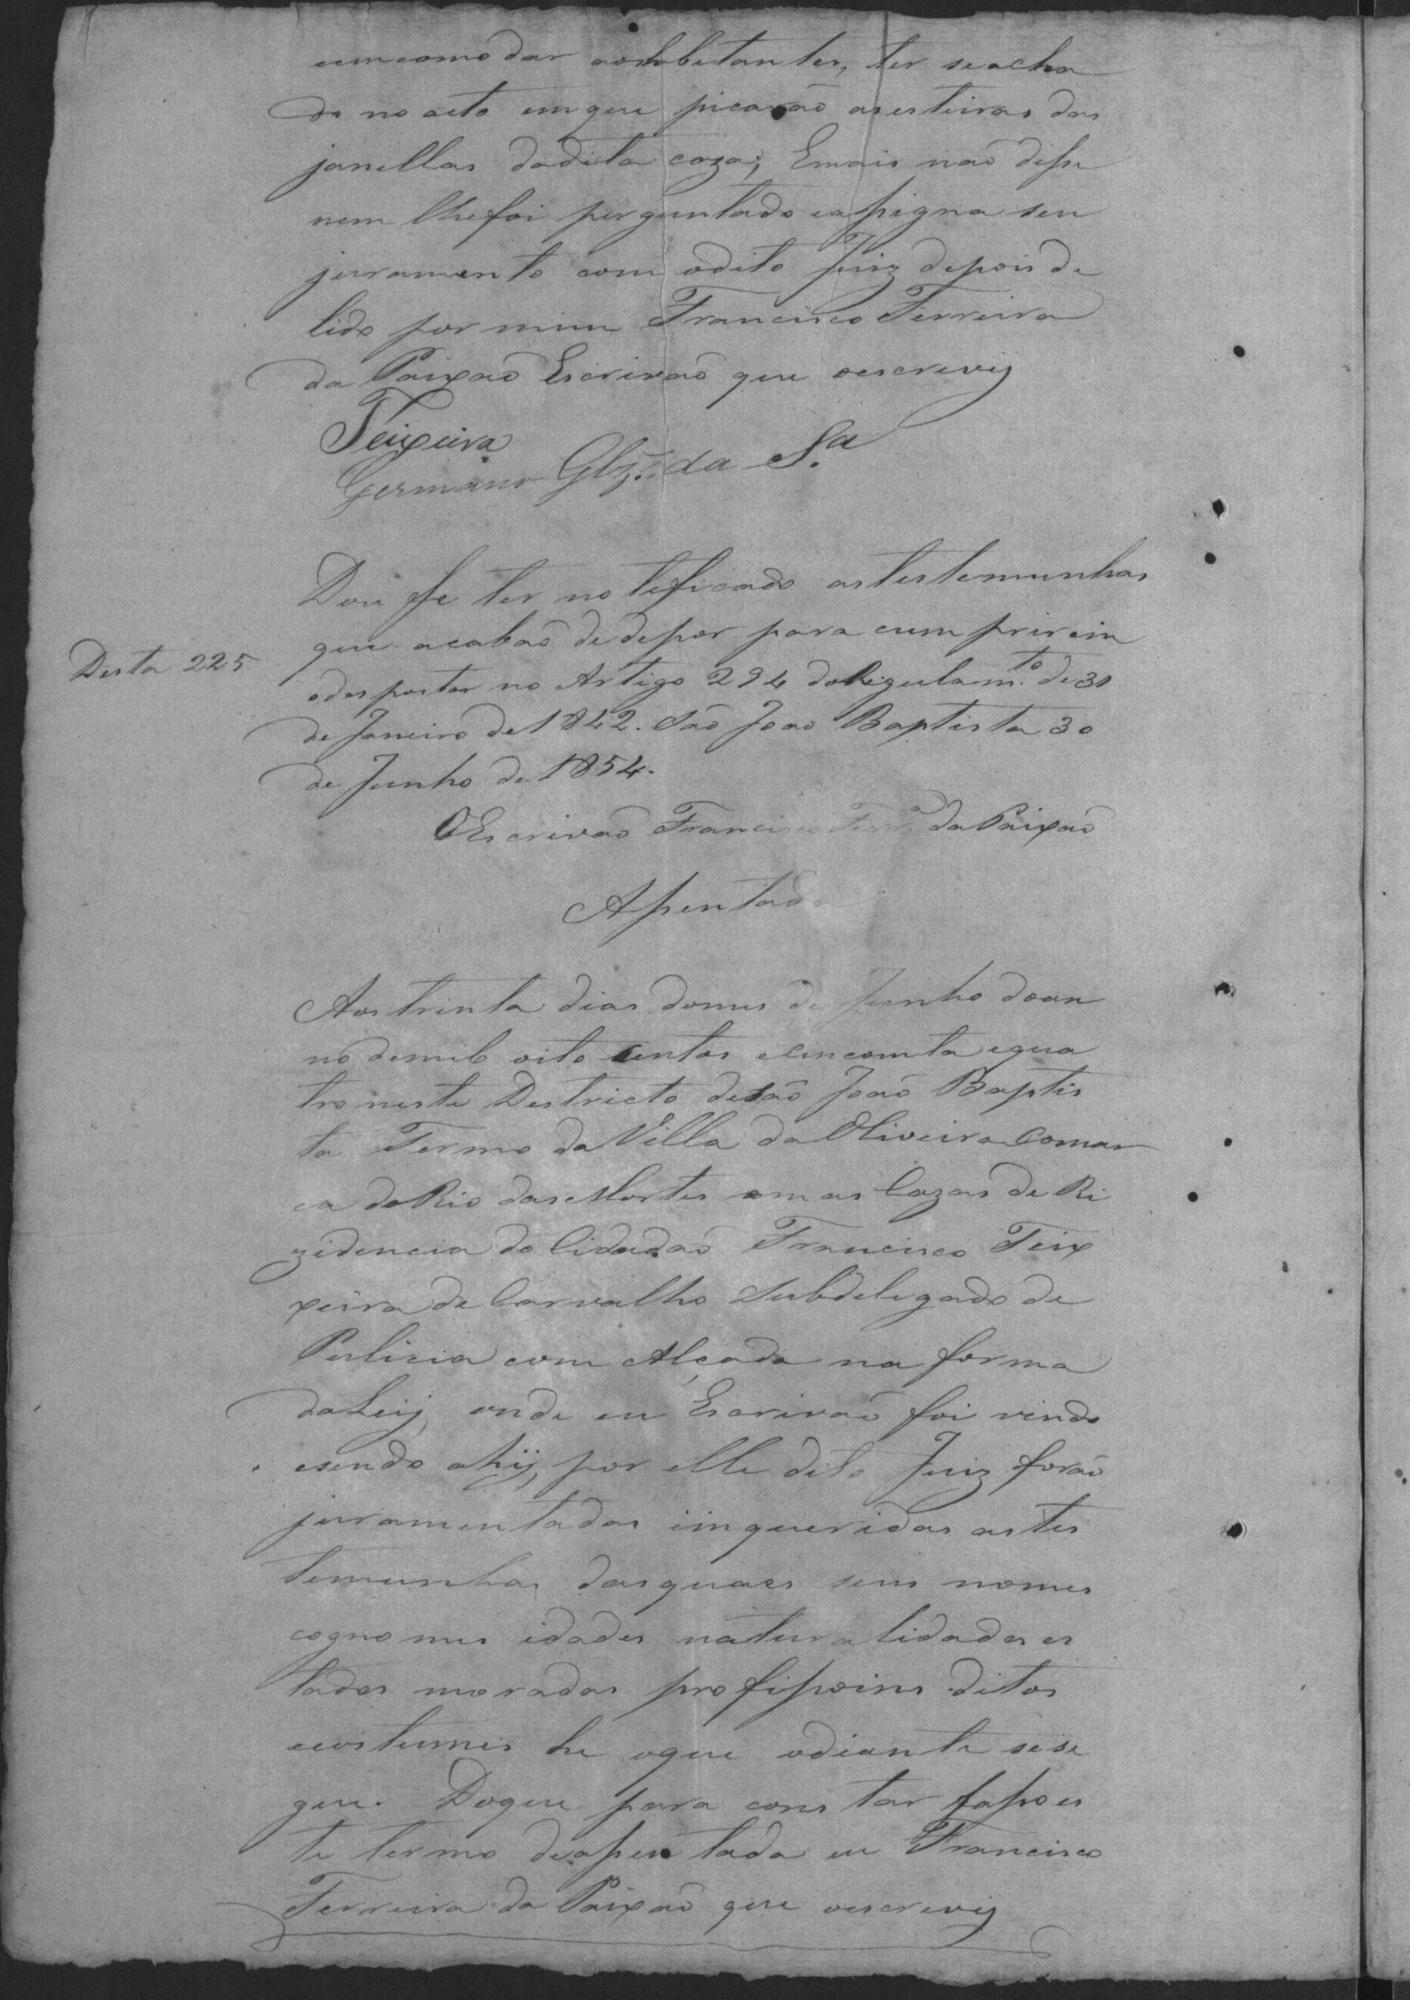 emcomodar aoshabetantes, ter seacha
do no acto emque picarão as esteiras das
janellas dadita caza; Emais não disse
nem lhefoi perguntado eassigna seu
juramento com odito Juiz depois de
lido por mim Francisco Ferreira
da Paixão Escrivão que oescrevij
Teixeira
Germano Glz. da S.a
Dou fe ter noteficado astestemunhas
que acabão dedepor para cumprirem
odespostos no Artigo 294 doRegulam.to de 31
de Janeiro de 1842. São João Baptista 30
de Junho de 1854.
Desta 225
OEscrivão Francisco Ferr.a da Paixão
Assentada
Aostrinta dias domes de Junho doan
no demil oito centos ecincoenta equa
tro neste Destricto desão João Baptis
ta Termo da Villa da Oliveira Comar
ca do Rio das Mortes em as Cazas de Ri
zidencia do Cidadão Francisco Teix
xeira de Carvalho Subdelegado de
Pulicia com Alçada na forma
daLeij, onde eu Escrivão foi vindo
esendo ahij, por elle dito Juiz forão
juramentadas iinqueridas astes
temunhas dasquaes seus nomes
cognomes idades naturalidades es
tados moradas profissoins ditos
ecostumes he oque adiante sese
gue. Doque para constar fasso es
te termo deassentada eu Francisco
Ferreira da Paixão que oescrevij